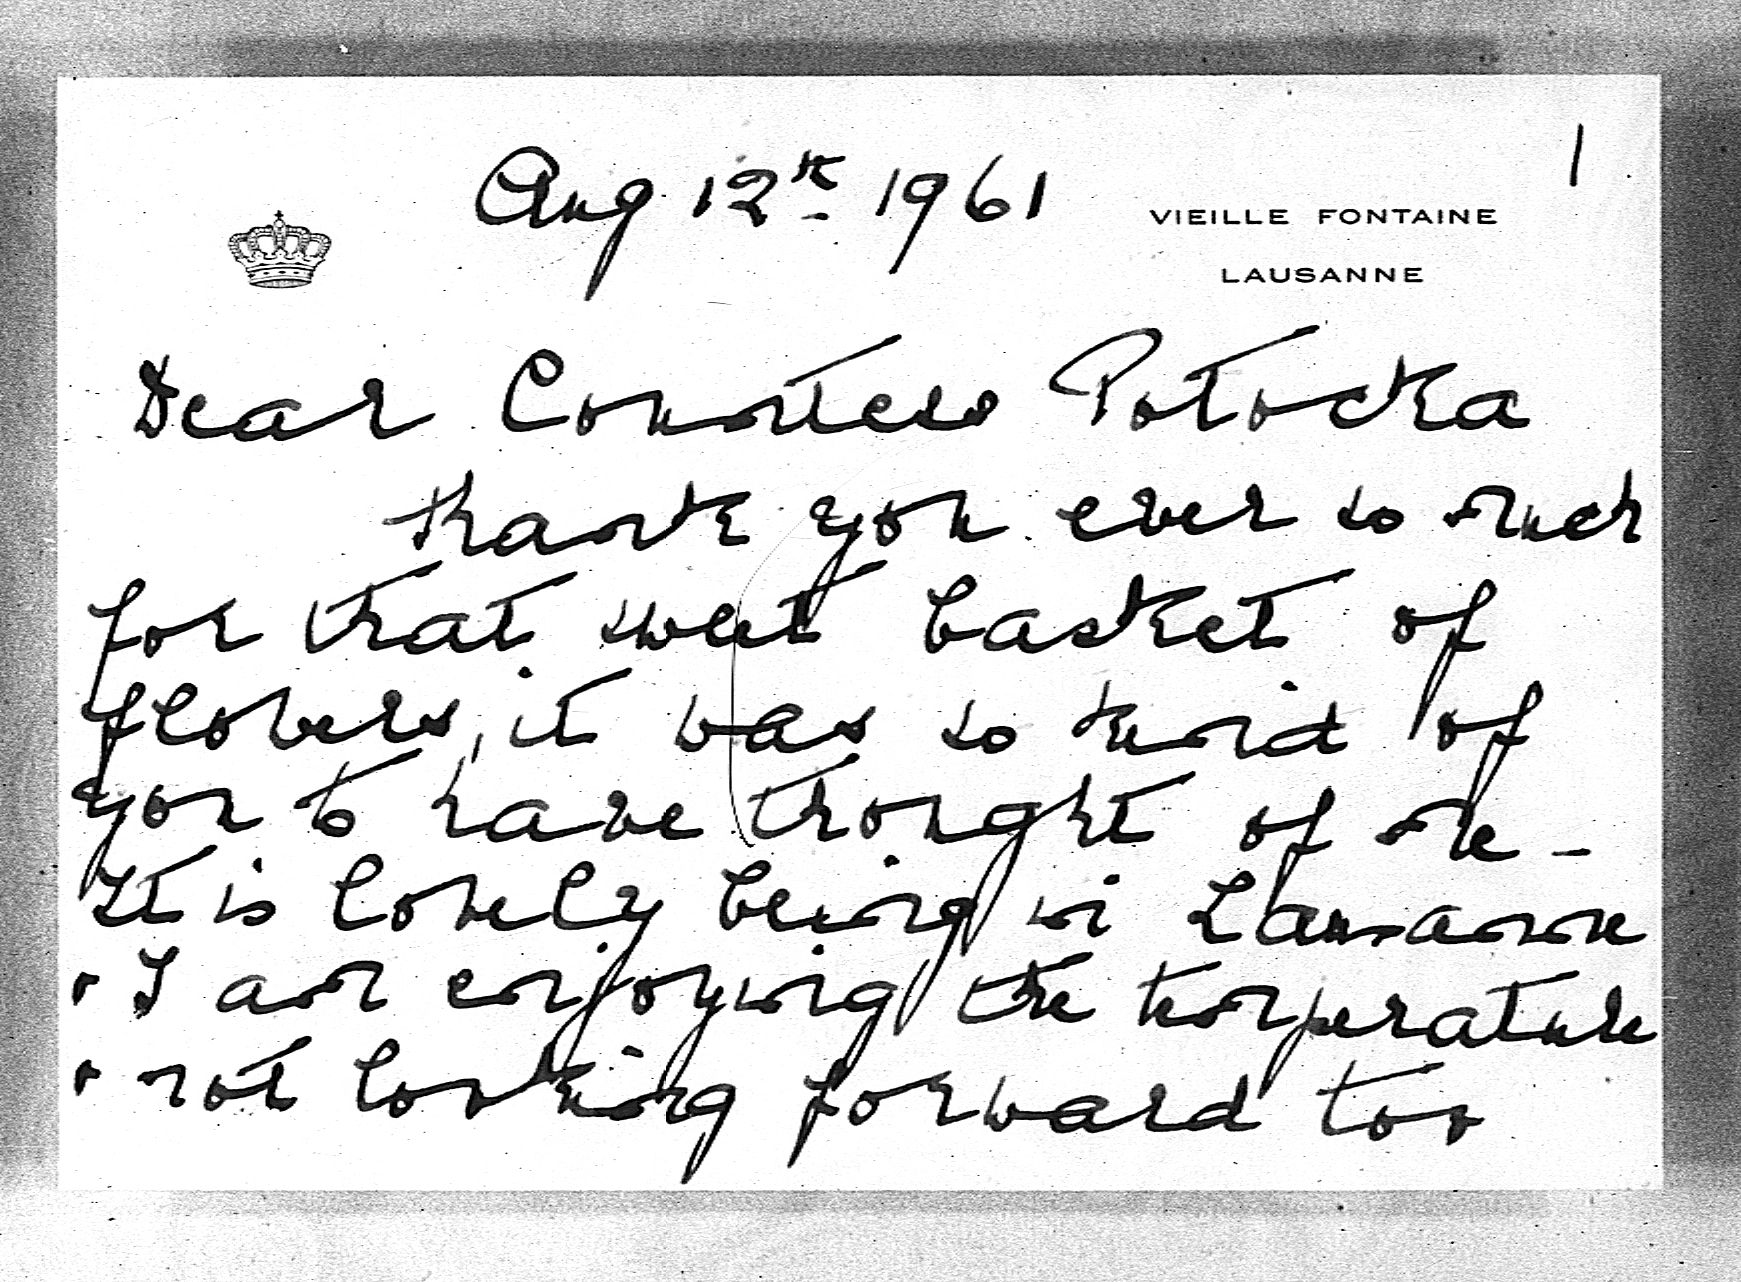 1
Aug 12th 1961
VIEILLE FONTAINE
LAUSANNE
Dear Countess Potocka
thank you ever so much
for that sweet basket of
flowers, it was so kind of
you to have thought of me -
It is lovely being in Lausanne
& I am enjoying the temperature
& not looking forward too